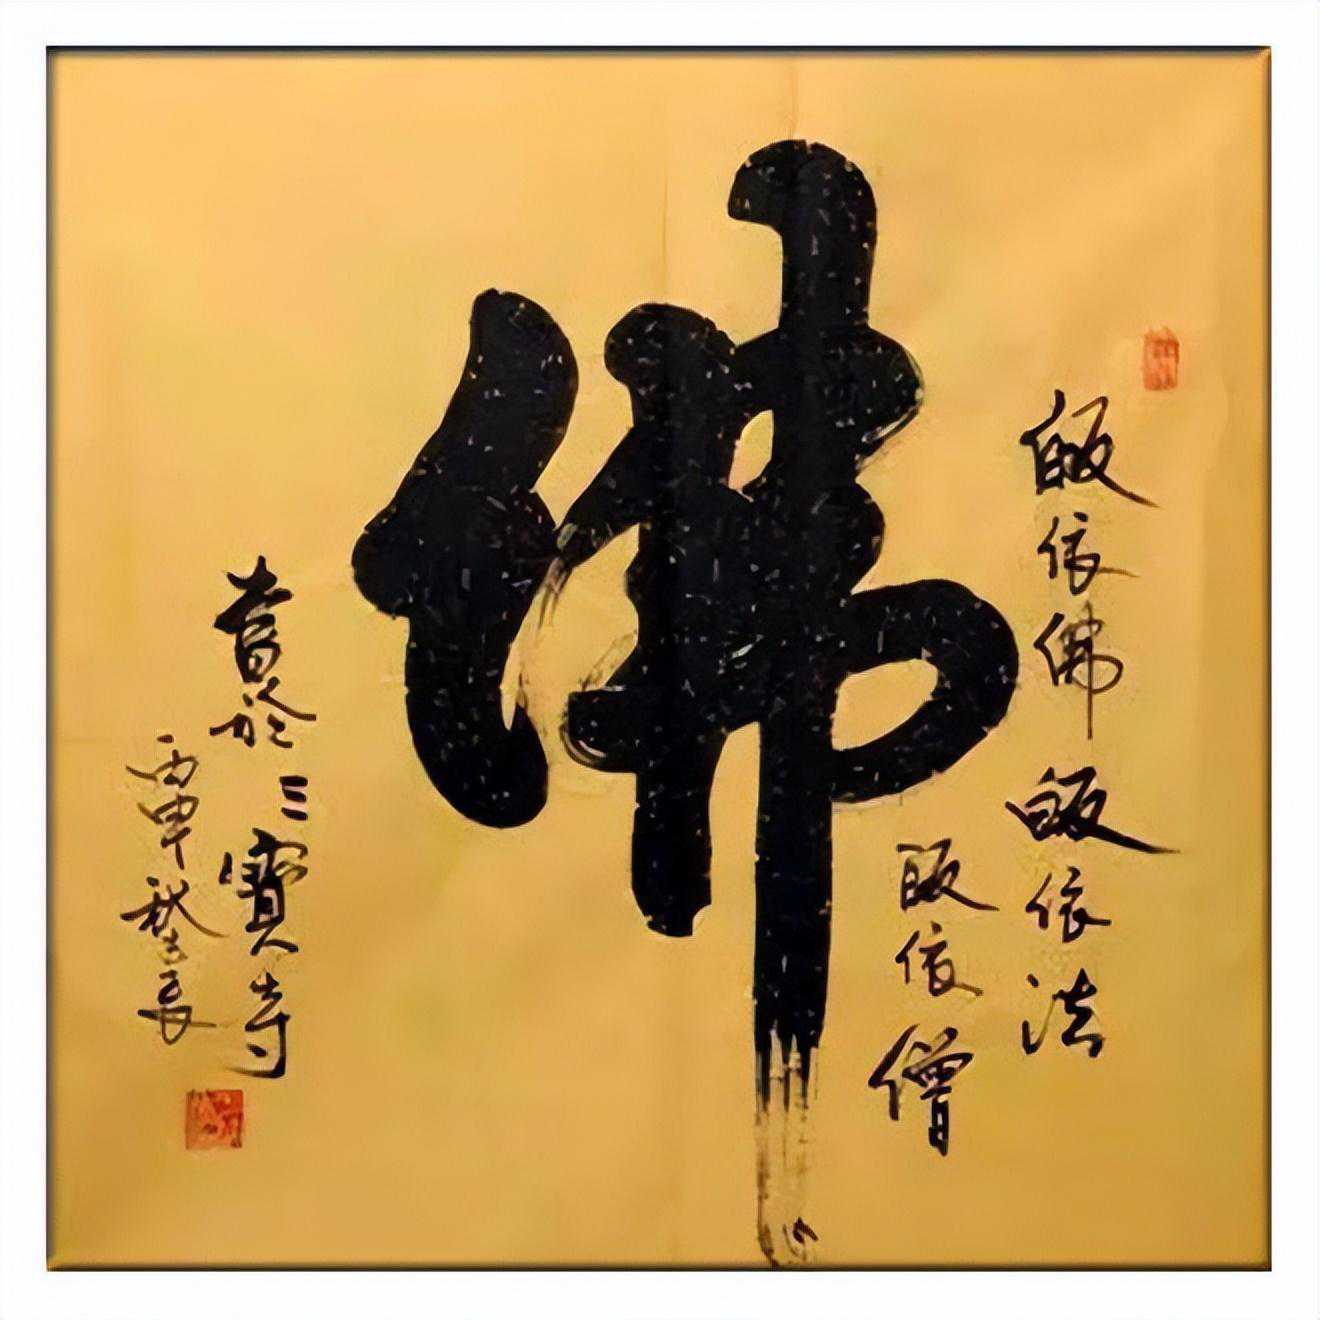 皈依佛 皈依法
皈依僧
佛
書於三寶寺
丙申秋